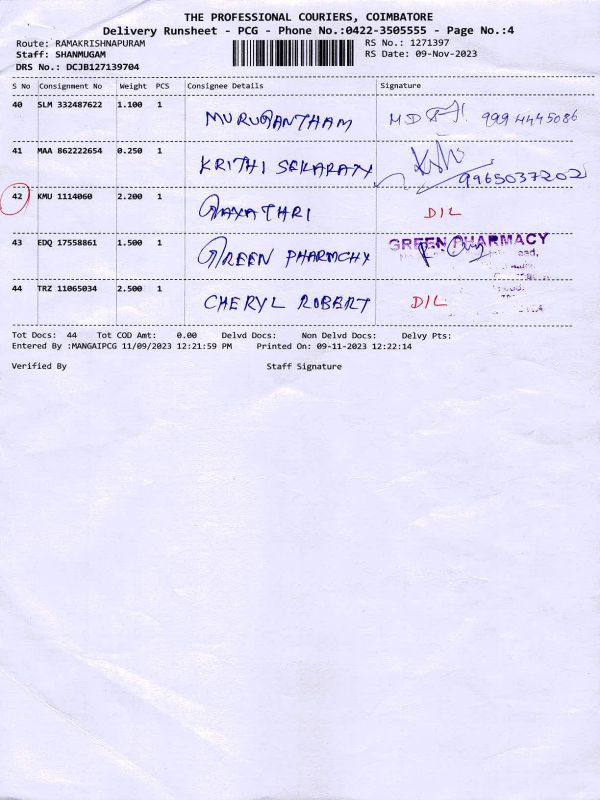 THE PROFESSIONAL COURIERS, COIMBATORE
Delivery Runsheet - PCG - Phone No.:0422-3505555 - Page No.:4
Route: RAMAKRISHNAPURAM RS No.: 1271397
Staff: SHANMUGAM RS Date: 09-Nov-2023
DRS No.: DCJB127139704
S No Consignment No Weight PCS Consignee Details Signature
40 SLM 332487622 1.100 1 MURUGANTHAM MD 9994445086
41 MAA 862222654 0.250 1 KRITHI SEKARAN 9965037202
42 KMU 1114060 2.200 1 GAYATHRI D/L
43 EDQ 17558861 1.500 1 GREEN PHARMCHY GREEN PHARMACY
44 TRZ 11065034 2.500 1 CHERYL ROBERT D/L
Tot Docs: 44 Tot COD Amt: 0.00 Delvd Docs: Non Delvd Docs: Delvy Pts:
Entered By :MANGAIPCG 11/09/2023 12:21:59 PM Printed On: 09-11-2023 12:22:14
Verified By Staff Signature